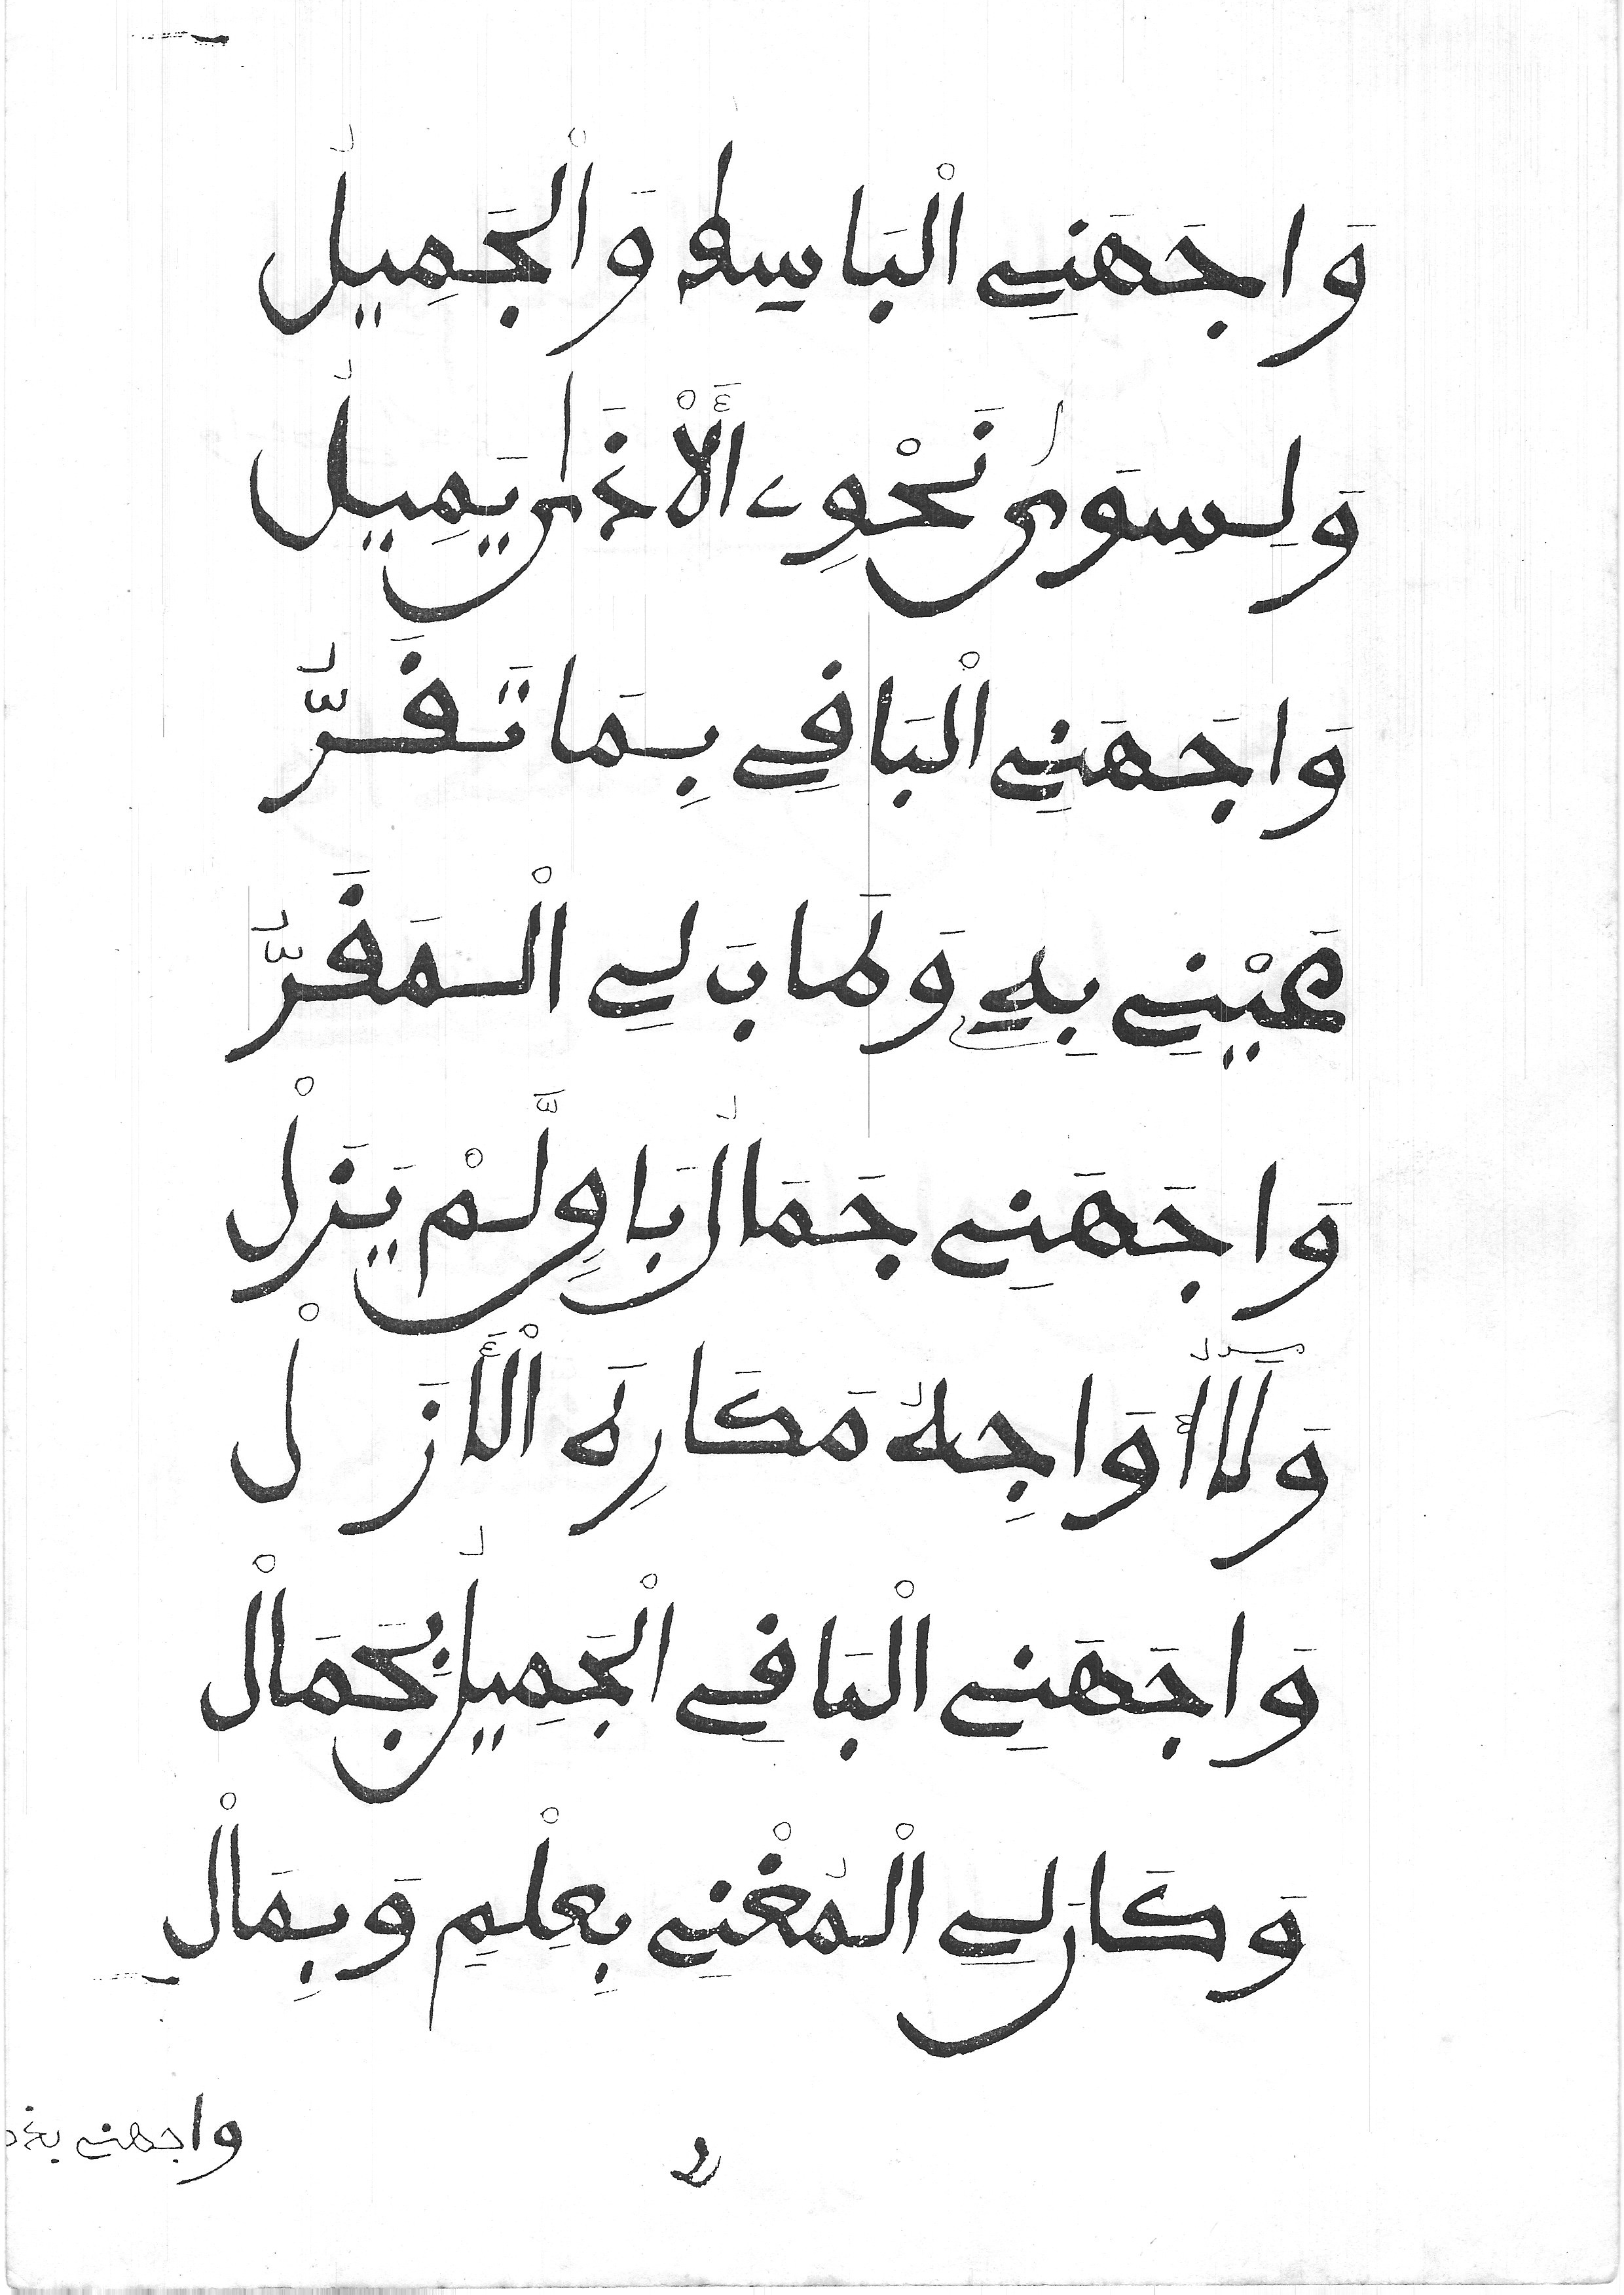 وَاجَهَنِي الْبَاسِطُ وَالْجَمِيلُ
وَلِسِوَى نَحْوِي الْأَذَى يَمِيلُ
وَاجَهَنِي الْبَاقِي بِمَا تَقَرُّ
عَيْنِي بِهِ وَطَابَ لِي الْمَقَرُّ
وَاجَهَنِي جَمَالُ بَاقٍ لَّمْ يَزَلْ
وَلَآ أُوَاجِهُ مَكَارِهَ الْأَزَلْ
وَاجَهَنِي الْبَاقِي الْجَمِيلُ بِجَمَالْ
وَكَانَ لِي الْمُغْنِي بِعِلْمٍ وَبِمَالْ
واجهني